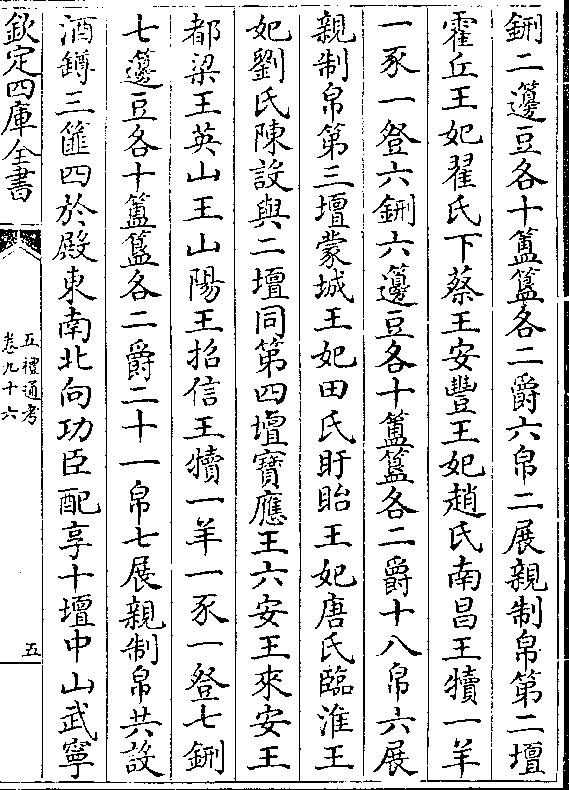 鉶二籩豆各十簠簋各二爵六帛二展親制帛第二壇
霍丘王妃翟氏下蔡王安豐王妃趙氏南昌王犢一羊
一豕一登六鉶六籩豆各十簠簋各二爵十八帛六展
親制帛第三壇蒙城王妃田氏盱眙王妃唐氏臨淮王
妃劉氏陳設與二壇同第四壇寶應王六安王來安王
都梁王英山王山陽王招信王犢一羊一豕一登七鉶
七籩豆各十簠簋各二爵二十一帛七展親制帛共設
酒鐏三篚四於殿東南北向功臣配享十壇中山武寧
欽定四庫全書
五禮通考
卷九十六
五